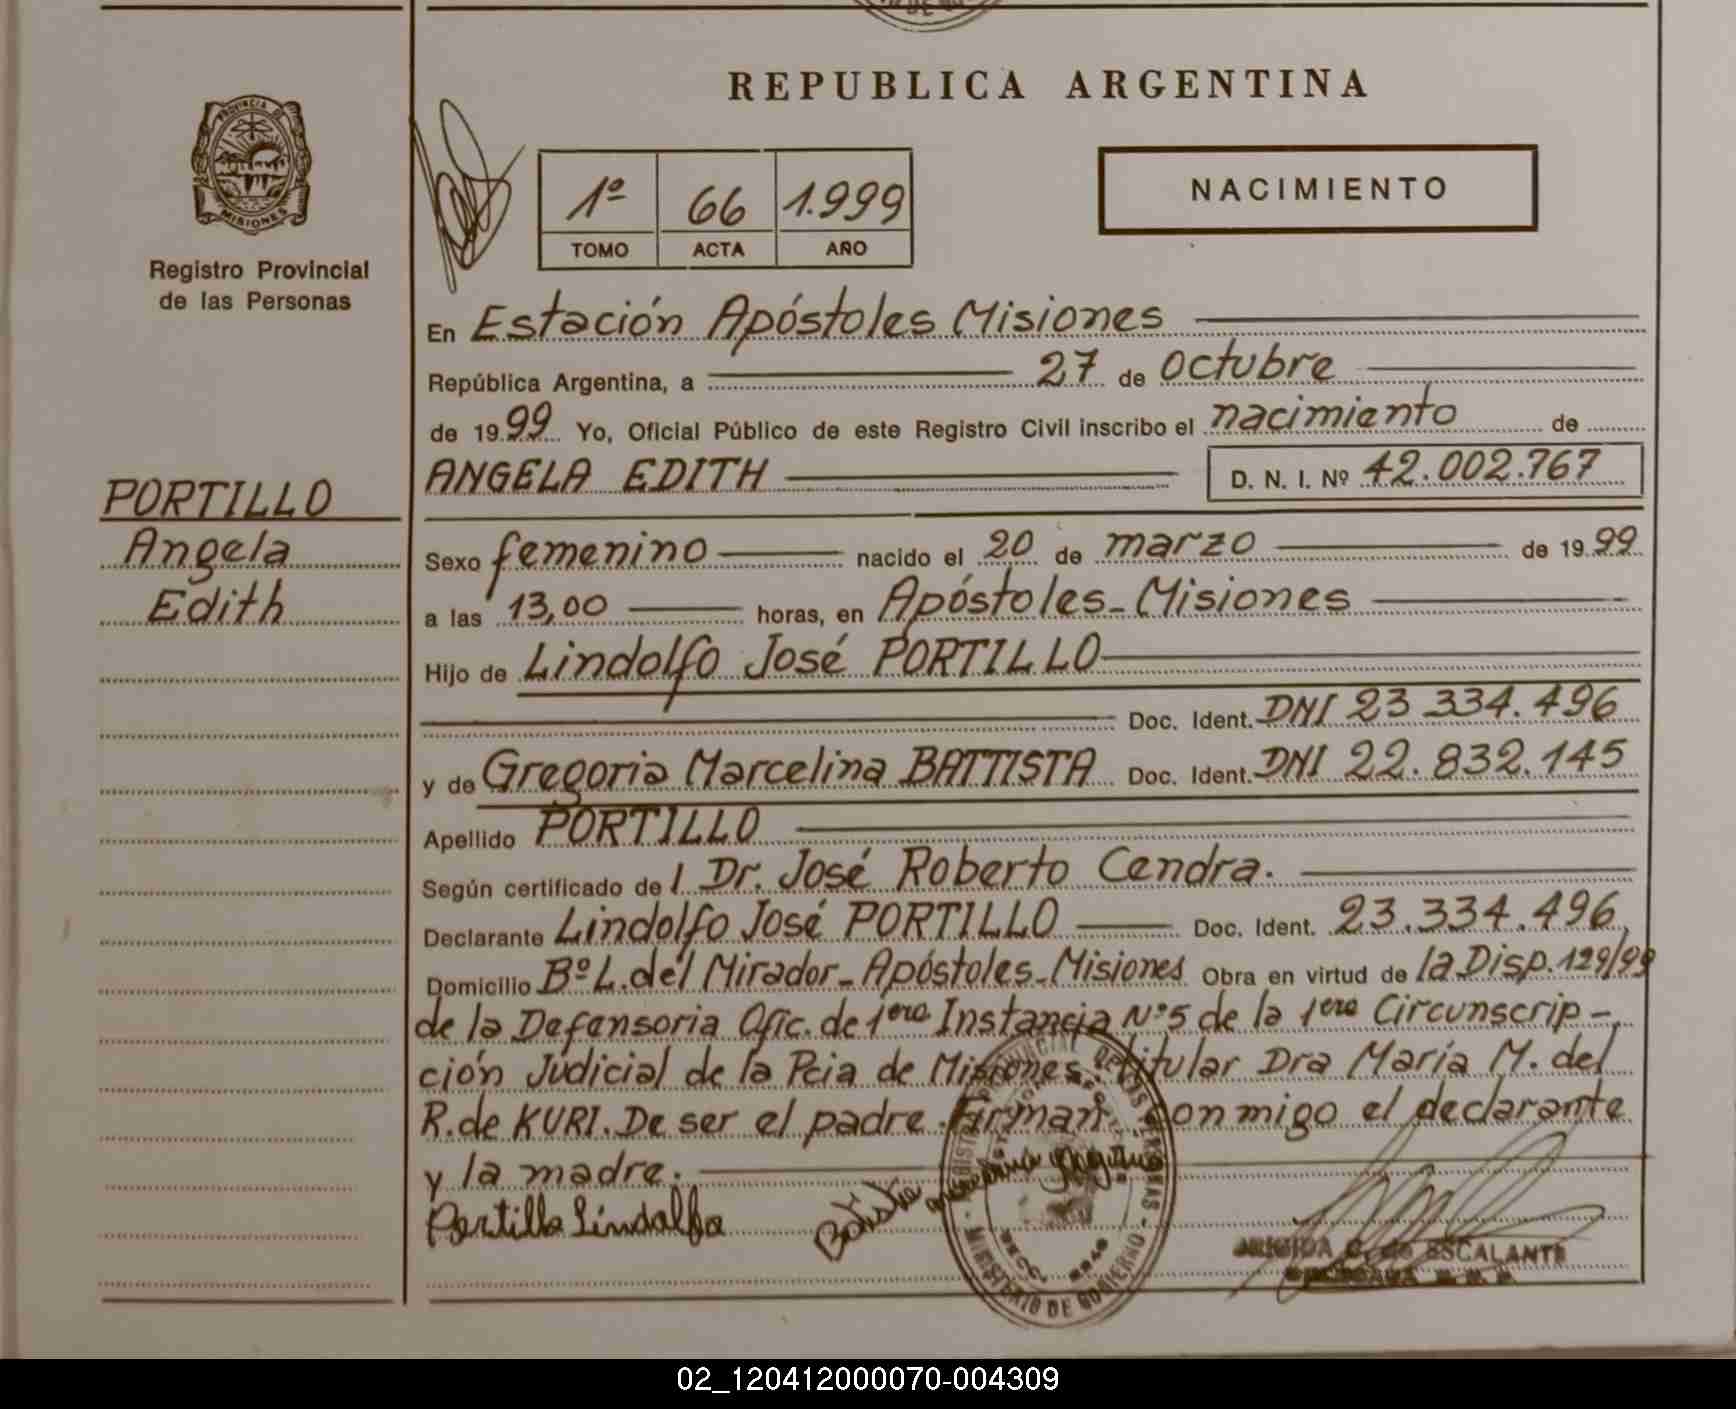 REPUBLICA ARGENTINA
PROVINCIA DE
MISIONES
Registro Provincial
de las Personas
1º 66 1.999
TOMO ACTA AÑO
NACIMIENTO
En Estación Apóstoles Misiones
República Argentina, a 27 de octubre
de 1999 Yo, Oficial Público de este Registro Civil inscribo el nacimiento de
ANGELA EDITH D. N. I. Nº 42.002.767
PORTILLO
Angela
Edith
Sexo femenino nacido el 20 de marzo de 1999
a las 13,00 horas, en Apóstoles-Misiones
Hijo de Lindolfo José PORTILLO
Doc. Ident. DNI 23 334.496
y de Gregoria Marcelina BATTISTA Doc. Ident. DNI 22.832.145
Apellido PORTILLO
Según certificado del Dr. José Roberto Cendra.
Declarante Lindolfo José PORTILLO Doc. Ident. 23.334.496
Domicilio Bº L. del Mirador-Apóstoles-Misiones Obra en virtud de la Disp. 129/99
de la Defensoria Ofic. de 1era Instancia Nº5 de la 1era Circunscrip-
ción Judicial de la Pcia de Misiones. titular Dra María M. del
R. de KURI. De ser el padre. Firman conmigo el declarante
y la madre.
Portillo Lindolfo
Batista
MINISTERIO DE GOBIERNO
de ESCALANTE
02_120412000070-004309